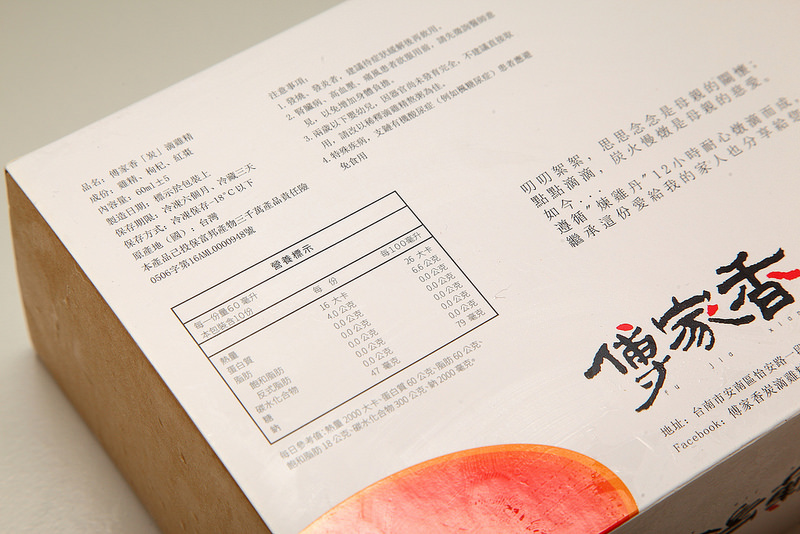 品名：傳家香「炭」滴雞精
成份：雞精、枸杞、紅棗
內容量：60ml±5
製造日期：標示於包裝上
保存期限：冷凍六個月、冷藏三天
保存方式：冷凍保存-18°C以下
原產地（國）：台灣
本產品已投保富邦產物三千萬產品責任險
0506字第16AML0000948號
注意事項：
1.發燒、發炎者，建議待症狀緩解後再飲用。
2.腎臟病、高血壓、痛風患者欲服用前，請先徵詢醫師意
見，以免增加身體負擔。
3.兩歲以下嬰幼兒，因器官尚未發育完全，不建議直接取
用，請改以稀釋滴雞精熬粥為佳。
4.特殊疾病，支鏈有機酸尿症（例如楓糖尿症）患者應避
免食用
營養標示
每一份量60毫升
本包裝含10份
每份 每100毫升
熱量 16大卡 26大卡
蛋白質 4.0公克 6.6公克
脂肪 0.0公克 0.0公克
飽和脂肪 0.0公克 0.0公克
反式脂肪 0.0公克 0.0公克
碳水化合物 0.0公克 0.0公克
糖 0.0公克 0.0公克
鈉 47毫克 79毫克
每日參考值:熱量2000大卡、蛋白質60公克、脂肪60公克、
飽和脂肪18公克、碳水化合物300公克、鈉2000毫克。
叨叨絮絮，思思念念是母親的關懷；
點點滴滴，炭火慢燉是母親的慈愛。
如今...
遵循"煉雞丹"12小時耐心燉滴而成。
繼承這份愛給我的家人也分享給您
傅家香
fu jia xiang
地址：台南市安南區怡安路一段
Facebook：傅家香炭滴雞精